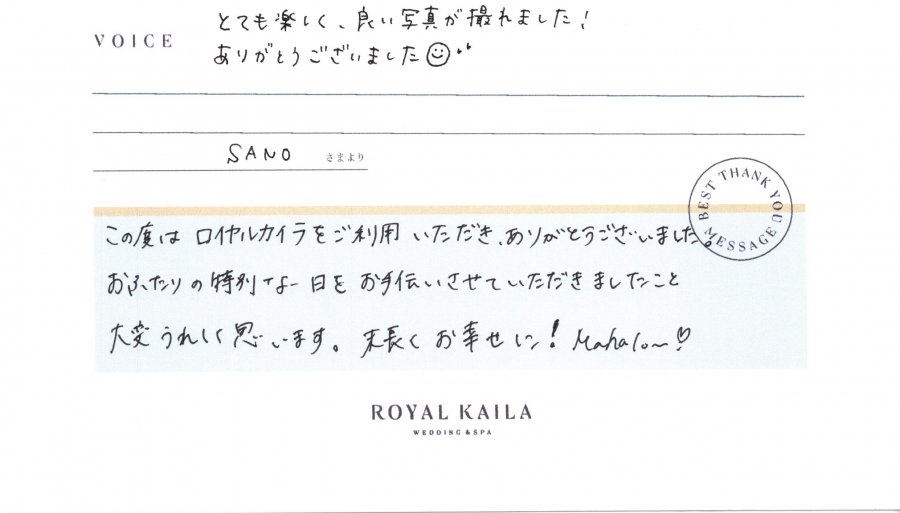 とても楽しく、良い写真が撮れました!
VOICE
ありがとうございました
SANO さまより
BEST THANK YOU MESSAGE
この度は ロイヤルカイラをご利用 いただき、ありがとうございました。
おふたりの特別な一日をお手伝いさせていただきましたこと
大変うれしく思います。末長くお幸せに! Mahalo~♡
ROYAL KAILA
WEDDING & SPA